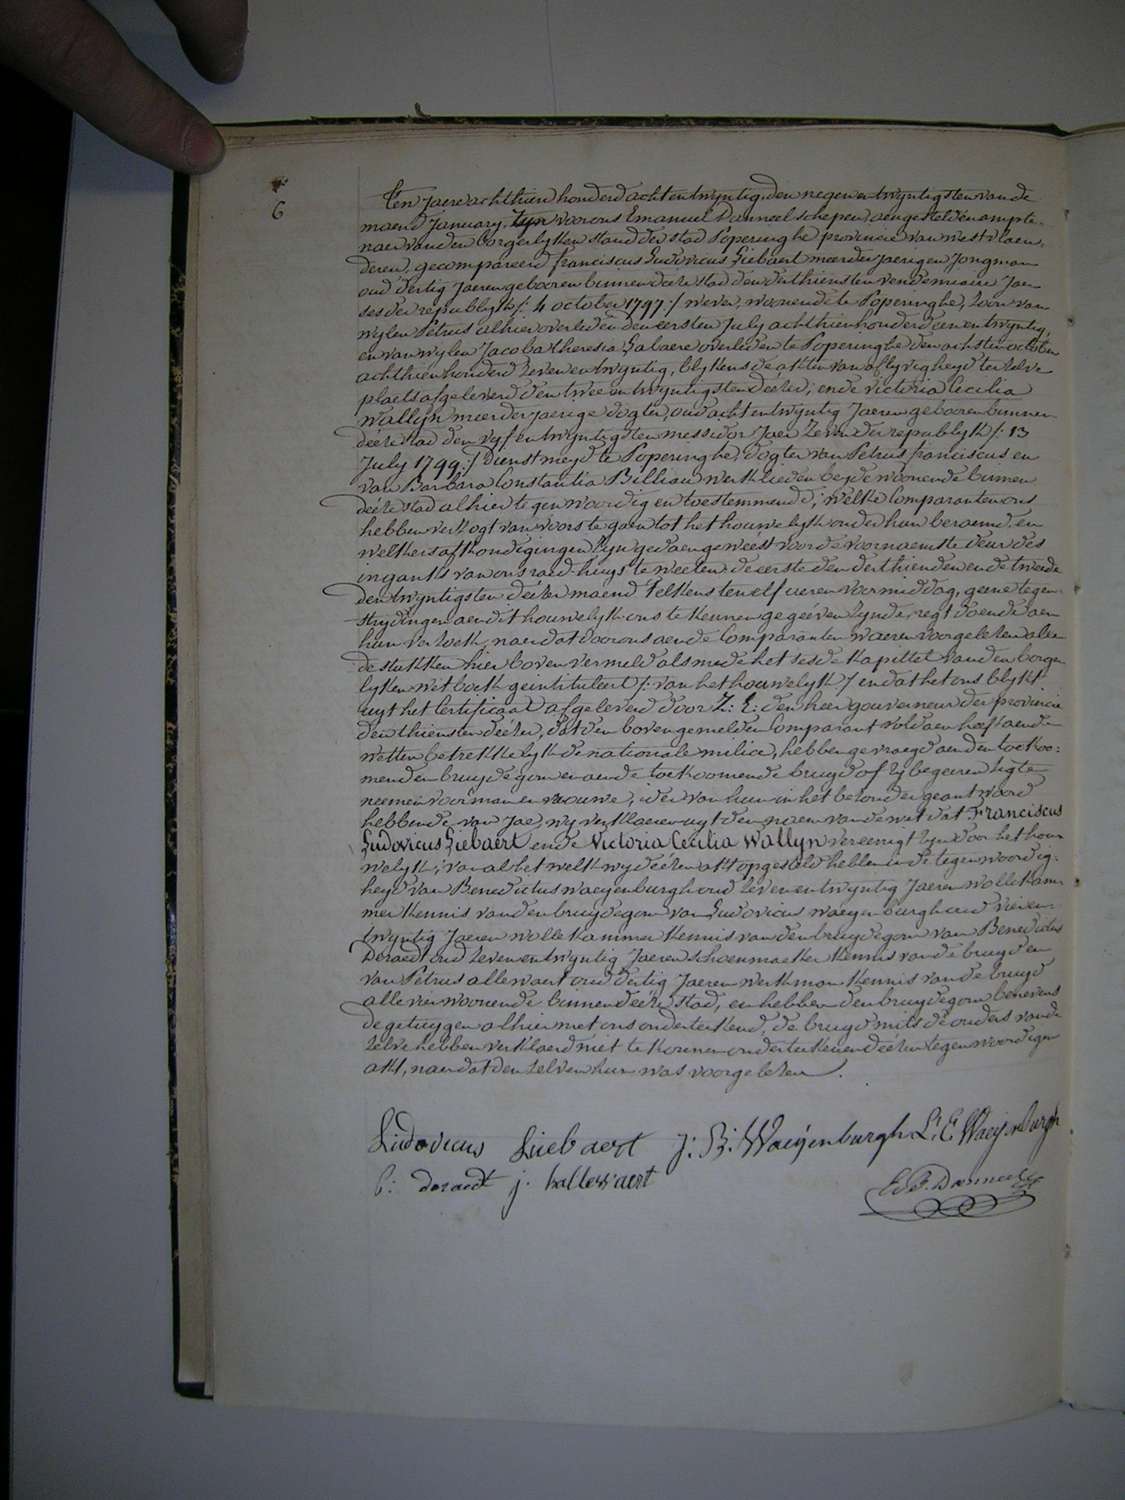 6
Ten Jaere achthien honderd acht en twyntig, den negen en twyntigsten van de
maend January, zyn voor ons Emanuel Danneel schepen aengesteld en ampte-
naer van den borgerlyken stand der stad Poperinghe provincie van westvlaen-
deren, gecompareerd franciscus Ludovicus Liebaert meerderjaerigen Jongman
oud dertig Jaeren gebooren binnen deéze stad den derthiensten vendemiaire Jaer
ses der republyk /: 4 october 1797 :/ wever, woonende te Poperinghe, zoon van
wylen Petrus alhier overleden den eersten July achthien honderd een en twyntig,
en van wylen Jacoba theresia Labaere overleden te Poperinghe den achsten october
achthien honderd zeven en twyntig, blykens de akten van aflyvigheyd ter zelve
plaets afgeleverd den twee en twyntigsten deézer, ende victoria Cecilia
Wallyn meerderjaerige dogter, oud acht en twyntig Jaeren gebooren binnen
deéze stad den vyf en twyntigsten messidor Jaer zeven der republyk /: 13
July 1799 :/ dienstmeyd te Poperinghe, dogter van Petrus franciscus en
van Barbara Constantia Billiau werklieden beyde woonende binnen
deéze stad alhier tegenwoordig en toestemmende; welke Comparanten ons
hebben verzogt van voors te gaen tot het houwelyk onder hun beraemd, en
welkers afkondigingen zyn gedaen geweést voor de voornaemste deur des
ingangs van ons raed-huys te weeten de eerste den derthienden en de tweede
den twyntigsten deézer maend telkens ten elf ueren voormiddag, geene tegen-
strydingen aen dit houwelyk ons te kennen gegeéven zynde, regt doende aen
hun verzoek, naer dat door ons aen de Comparanten waeren voorgelezen alle
de stukken hier boven vermeld als mede het sesde kapittel van den borger-
lyken wetboek geintituleert /: van het houwelyk :/ en dat het ons blykt
uyt het Certificaet afgeleverd door Z: E: den heer gouverneur der provincie
den thiensten deézer, dat den bovengemelden Comparant voldaen heeft aen de
wetten betrekkelyk de nationale milice, hebben gevraegd aen den toekoo-
menden bruydegom en aen de toekoomende bruyd of zy begeeren zig te
neemen voor man en vrouwe, ider van hun in het bezonder geantwoord
hebbende van Jae, wy verklaeren uyt den naem van de wet dat Franciscus
Ludovicus Liebaert ende Victoria Cecilia Wallyn vereenigt zyn door het hou-
welyk; van al het welk wy deézen akt opgesteld hebben in de tegenwoordig-
heyd van Benedictus waeyenburgh oud zeven en twyntig Jaeren wollekam-
mer kennis van den bruydegom van Ludovicus waeyenburgh oud vier en
twyntig Jaeren wollekammer kennis van den bruydegom van Benedictus
Deraedt oud zeven en twyntig Jaeren schoenmaeker kennis van de bruyd en
van Petrus allewaert oud dertig Jaeren werkman kennis van de bruyd
alle vier woonende binnen deéze stad, en hebben den bruydegom benevens
de getuygen alhier met ons onderteekend, de bruyd mits de ouders van de
zelve hebben verklaerd niet te konnen onderteekenen deézen tegenwoordigen
akt, naer dat den zelven hun was voorgelezen.
Ludovicus Liebaert J: B: Waeÿenburgh L: E Waeijenburgh
b: deraedt j: hallewaert
E. F. Danneel